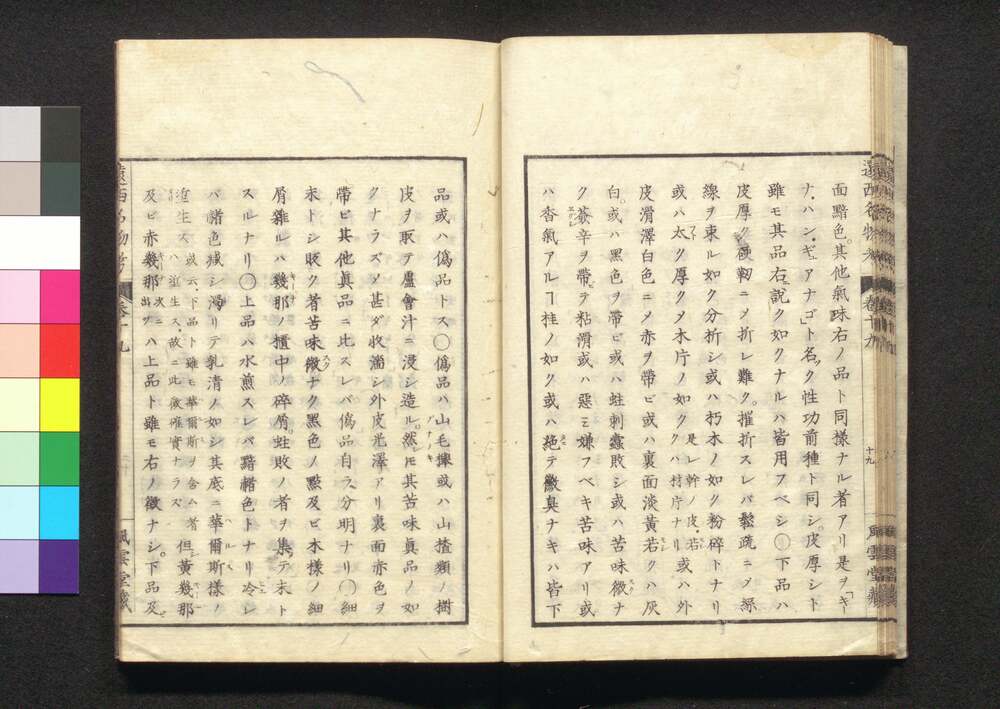 遠西名物考 卷十九 十九 風雲堂藏
面黯色其他氣味右ノ品ト同樣ナル者アリ是ヲ「キー
ナ、ハン、ギュアナゴ」ト名ヅク性功前種ト同シ。皮厚シト
雖モ其品右說ク如クナルハ皆用フベシ〇下品ハ
皮厚ク硬靭ニメ折レ難ク。摧折スレバ鬆疏ニメ
線ヲ束ル如ク分析シ或ハ朽木ノ如ク粉碎トナリ
或ハ太ク厚クメ木片ノ如ク 是レ幹ノ皮、若クハ樹片ナリ 或ハ外
皮滑澤白色ニメ赤ヲ帶ビ或ハ裏面淡黃若クハ灰
白。或ハ黑色ヲ帶ビ或ハ蛀刺蠧敗シ或ハ苦味微ナ
ク薟辛ヲ帶テ粘滑或ハ惡ミ嫌フベキ苦味アリ或
ハ香氣アルヿ桂ノ如ク或ハ絕テ黴臭ナキハ皆下
品或ハ僞品トス〇僞品ハ山毛擽或ハ山楂類ノ樹
皮ヲ取テ蘆會汁ニ浸シ造ル。然レモ其苦味眞品ノ如
クナラズ。甚ダ收濇シ外皮光澤アリ裏面赤色ヲ
帶ビ其他眞品ニ比スレバ僞品自ラ分明ナリ〇細
末トシ販ク者苦味微ナク黑色ノ點及ビ木樣ノ細
屑雜ルハ幾那ノ櫃中ノ碎屑。蛀敗ノ者ヲ集テ末ト
スルナリ〇上品ハ水煎スレバ黯赭色トナリ冷レ
バ赭色減シ濁リテ乳清ノ如シ其底ニ華爾斯樣ノ
渣生ス 或云、下品ト雖モ華爾斯ヲ含ム者ハ渣生ス、故ニ此徵確實ナラズ 但黃幾那
及ビ赤幾那 次ニ出ヅ ハ上品ト雖モ右ノ徵ナシ。下品及
遠西名物考 卷十九 風雲堂藏